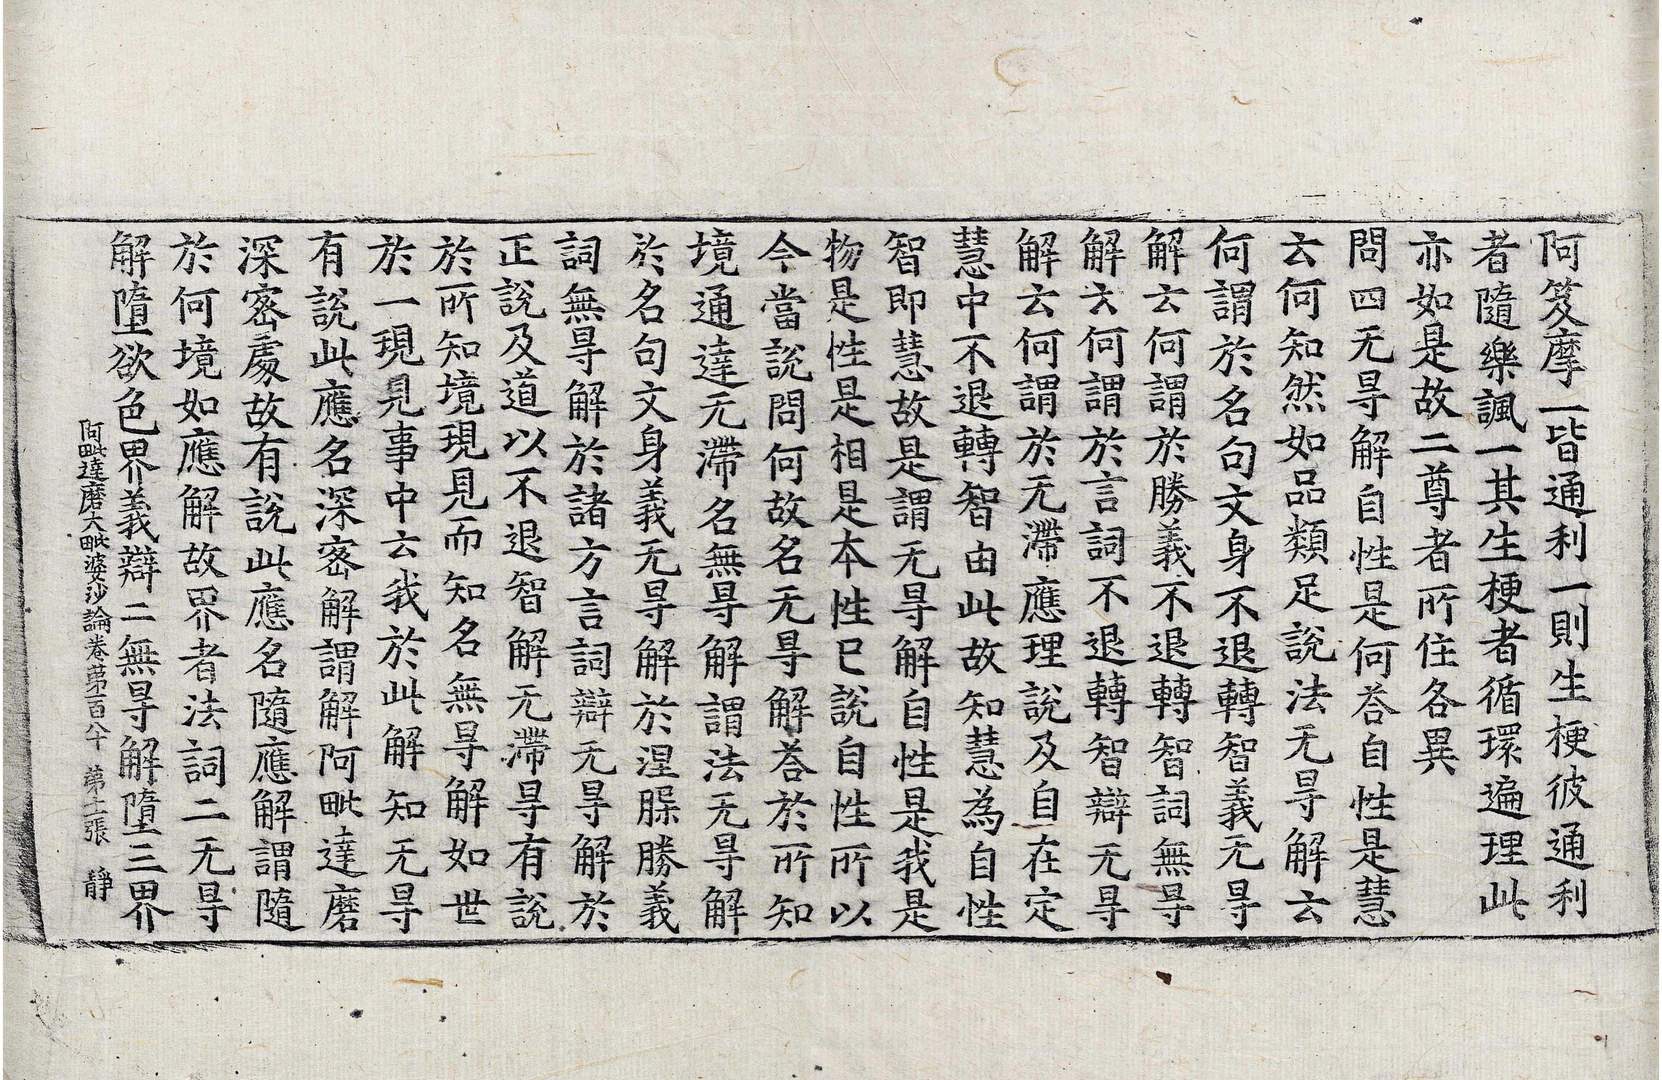 阿笈摩一皆通利一則生梗彼通利
者隨樂諷一其生梗者循環遍理此
亦如是故二尊者所住各異
問四无㝵解自性是何荅自性是慧
云何知然如品類足說法无㝵解云
何謂於名句文身不退轉智義无㝵
解云何謂於勝義不退轉智詞無㝵
解云何謂於言詞不退轉智辯无㝵
解云何謂於无滯應理說及自在定
慧中不退轉智由此故知慧為自性
智即慧故是謂无㝵解自性是我是
物是性是相是本性已說自性所以
今當說問何故名无㝵解荅於所知
境通達无滯名無㝵解謂法无㝵解
於名句文身義无㝵解於涅槃勝義
詞無㝵解於諸方言詞辯无㝵解於
正說及道以不退智解无滯㝵有說
於所知境現見而知名無㝵解如世
於一現見事中云我於此解知无㝵
有說此應名深密解謂解阿毗達磨
深密處故有說此應名隨應解謂隨
於何境如應解故界者法詞二无㝵
解墮欲色界義辯二無㝵解墮三界
阿毗達磨大毗婆沙論卷苐百八十 苐十一張 靜